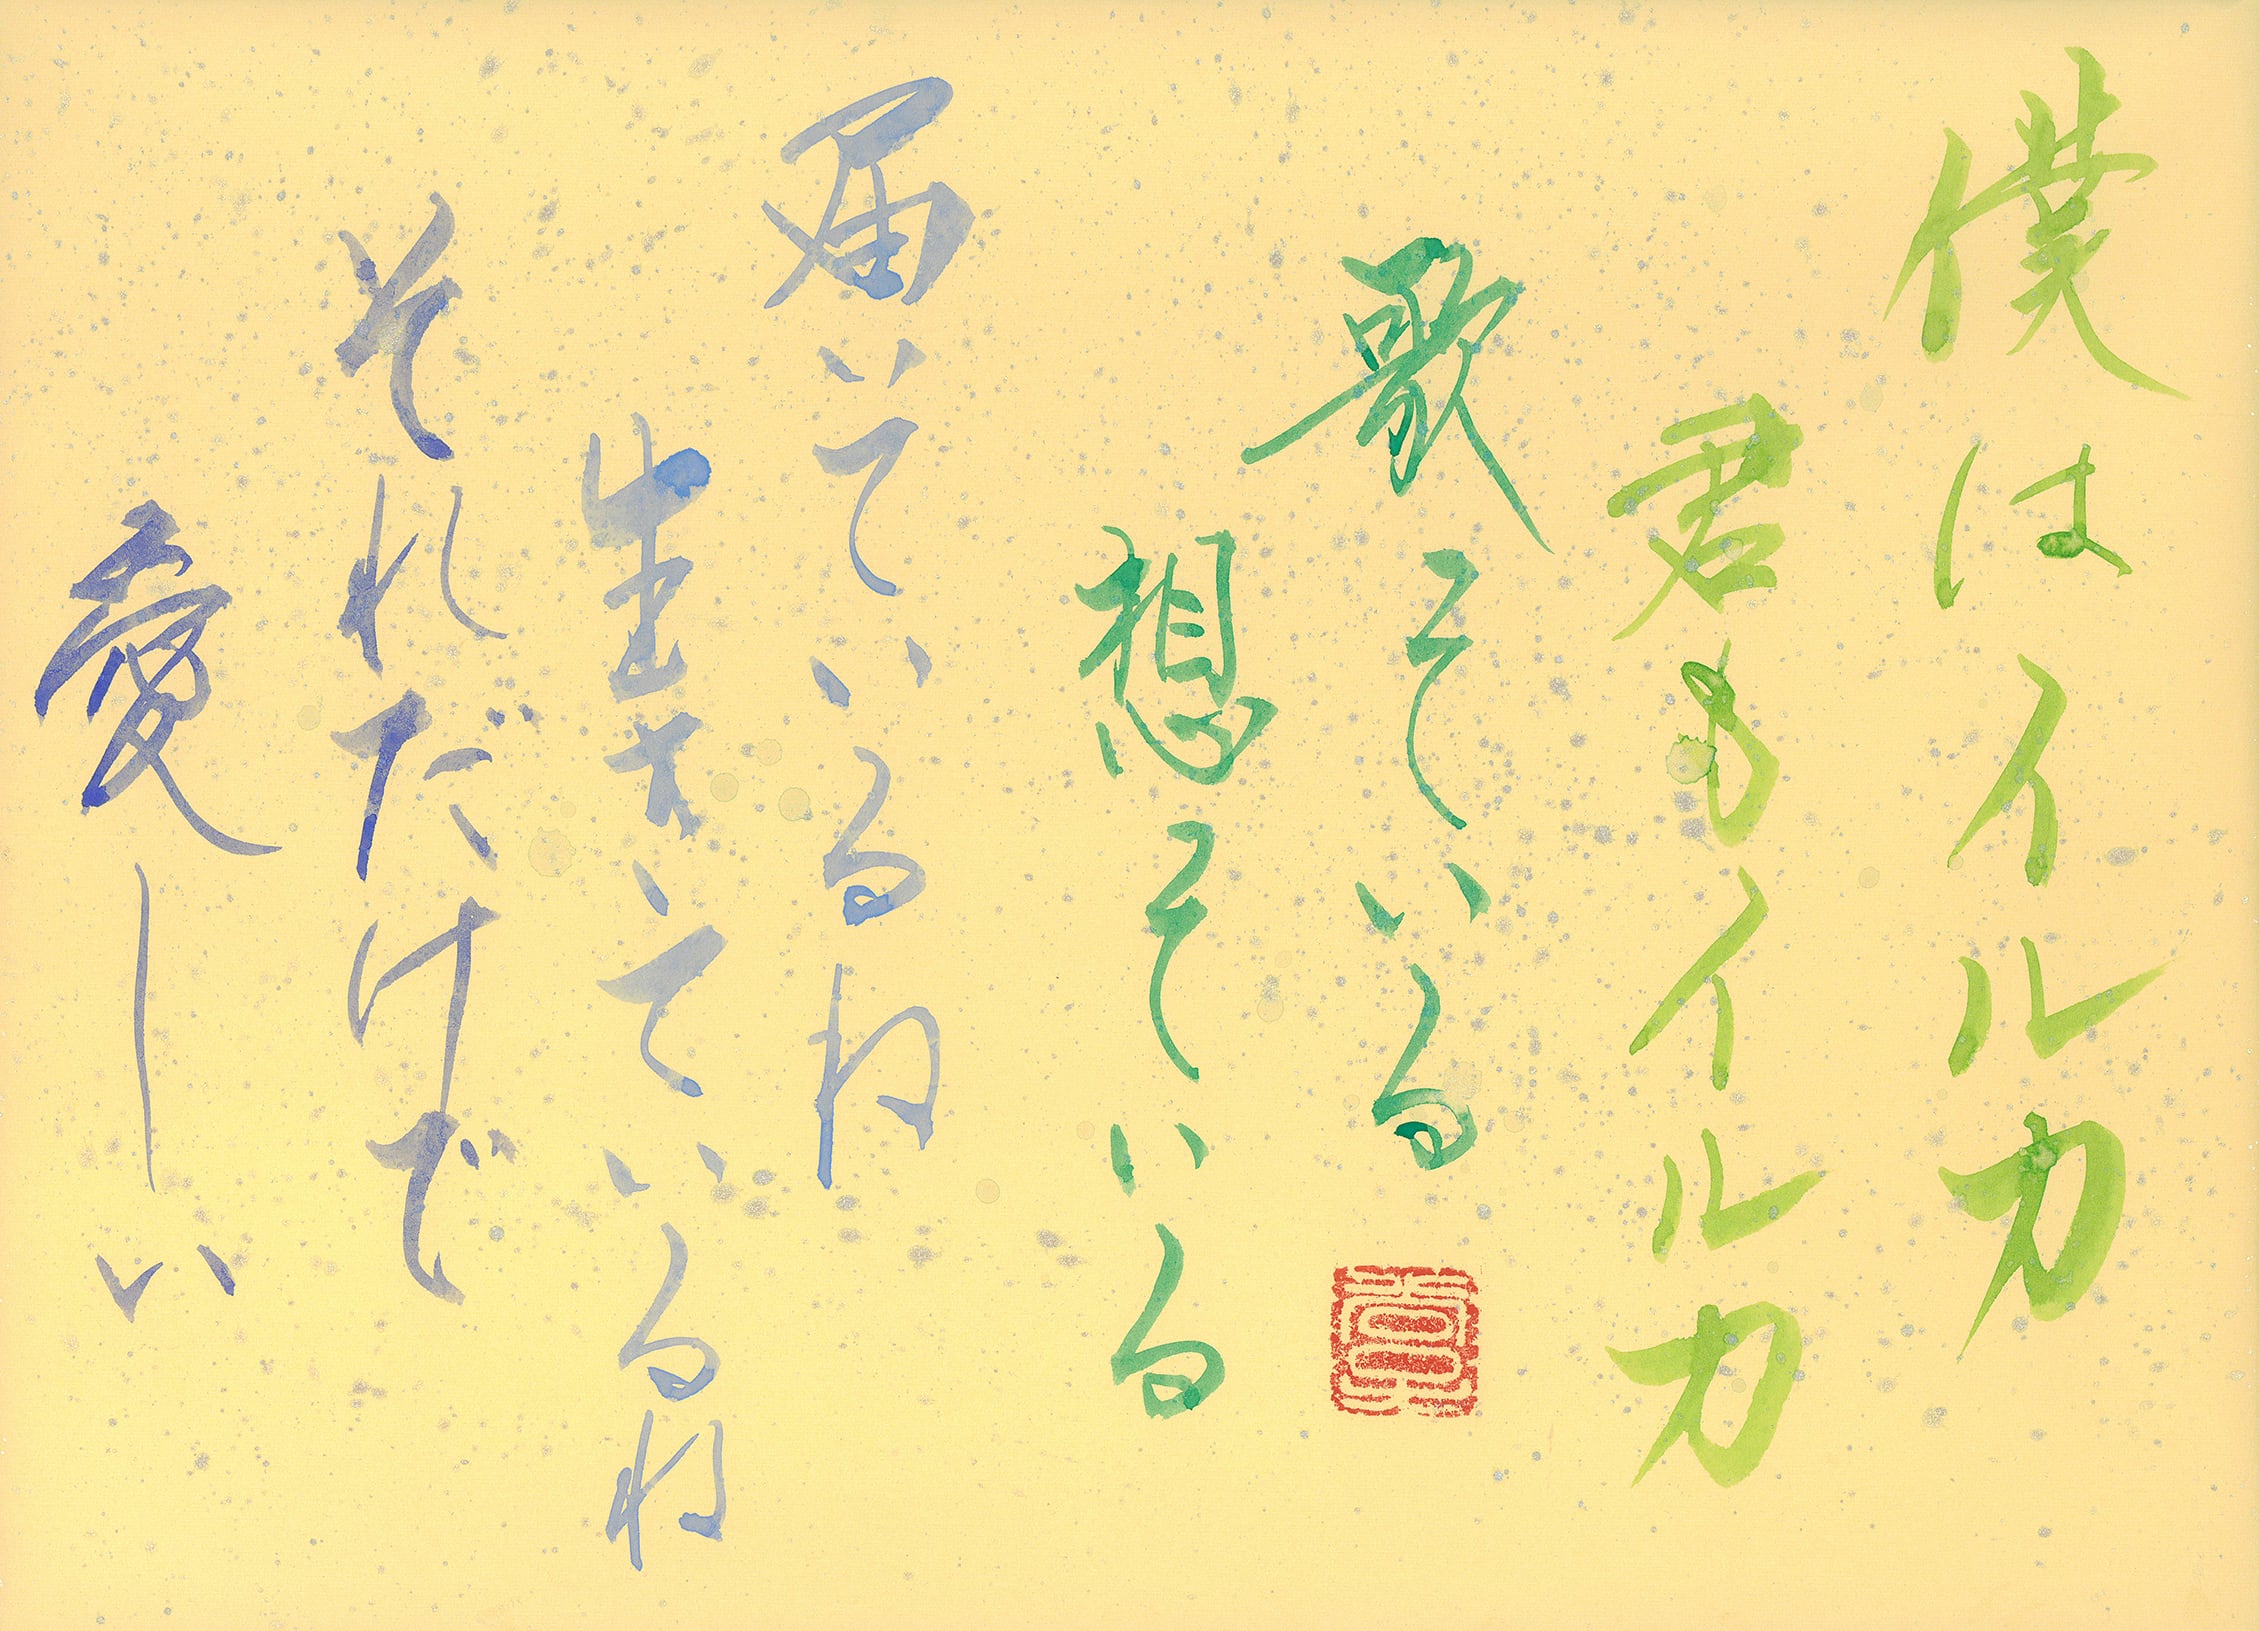 僕はイルカ
君もイルカ
歌そている
想そている
届いているね
生きているね
それだけで
愛しい